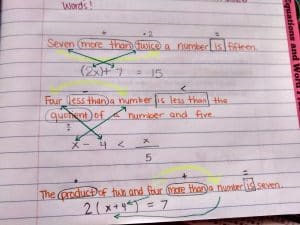 Words!
+ · 2 =
Seven more than twice a number is fifteen.
(2x)+ 7 = 15
− <
Four less than a number is less than the
quotient of a number and five.
÷
x - 4 < x
5
+ =
The product of two and four more than a number is seven.
2 ( x + 4 ) = 7
Equations and